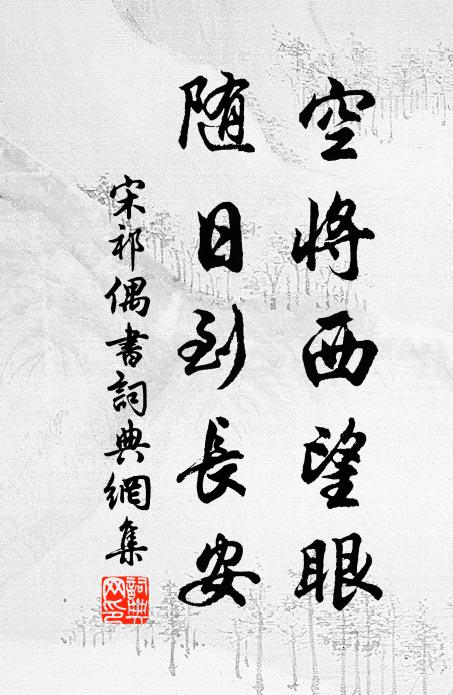 空将西望眼
随日到長安
宋祁偶書詞典網集
詞典網印